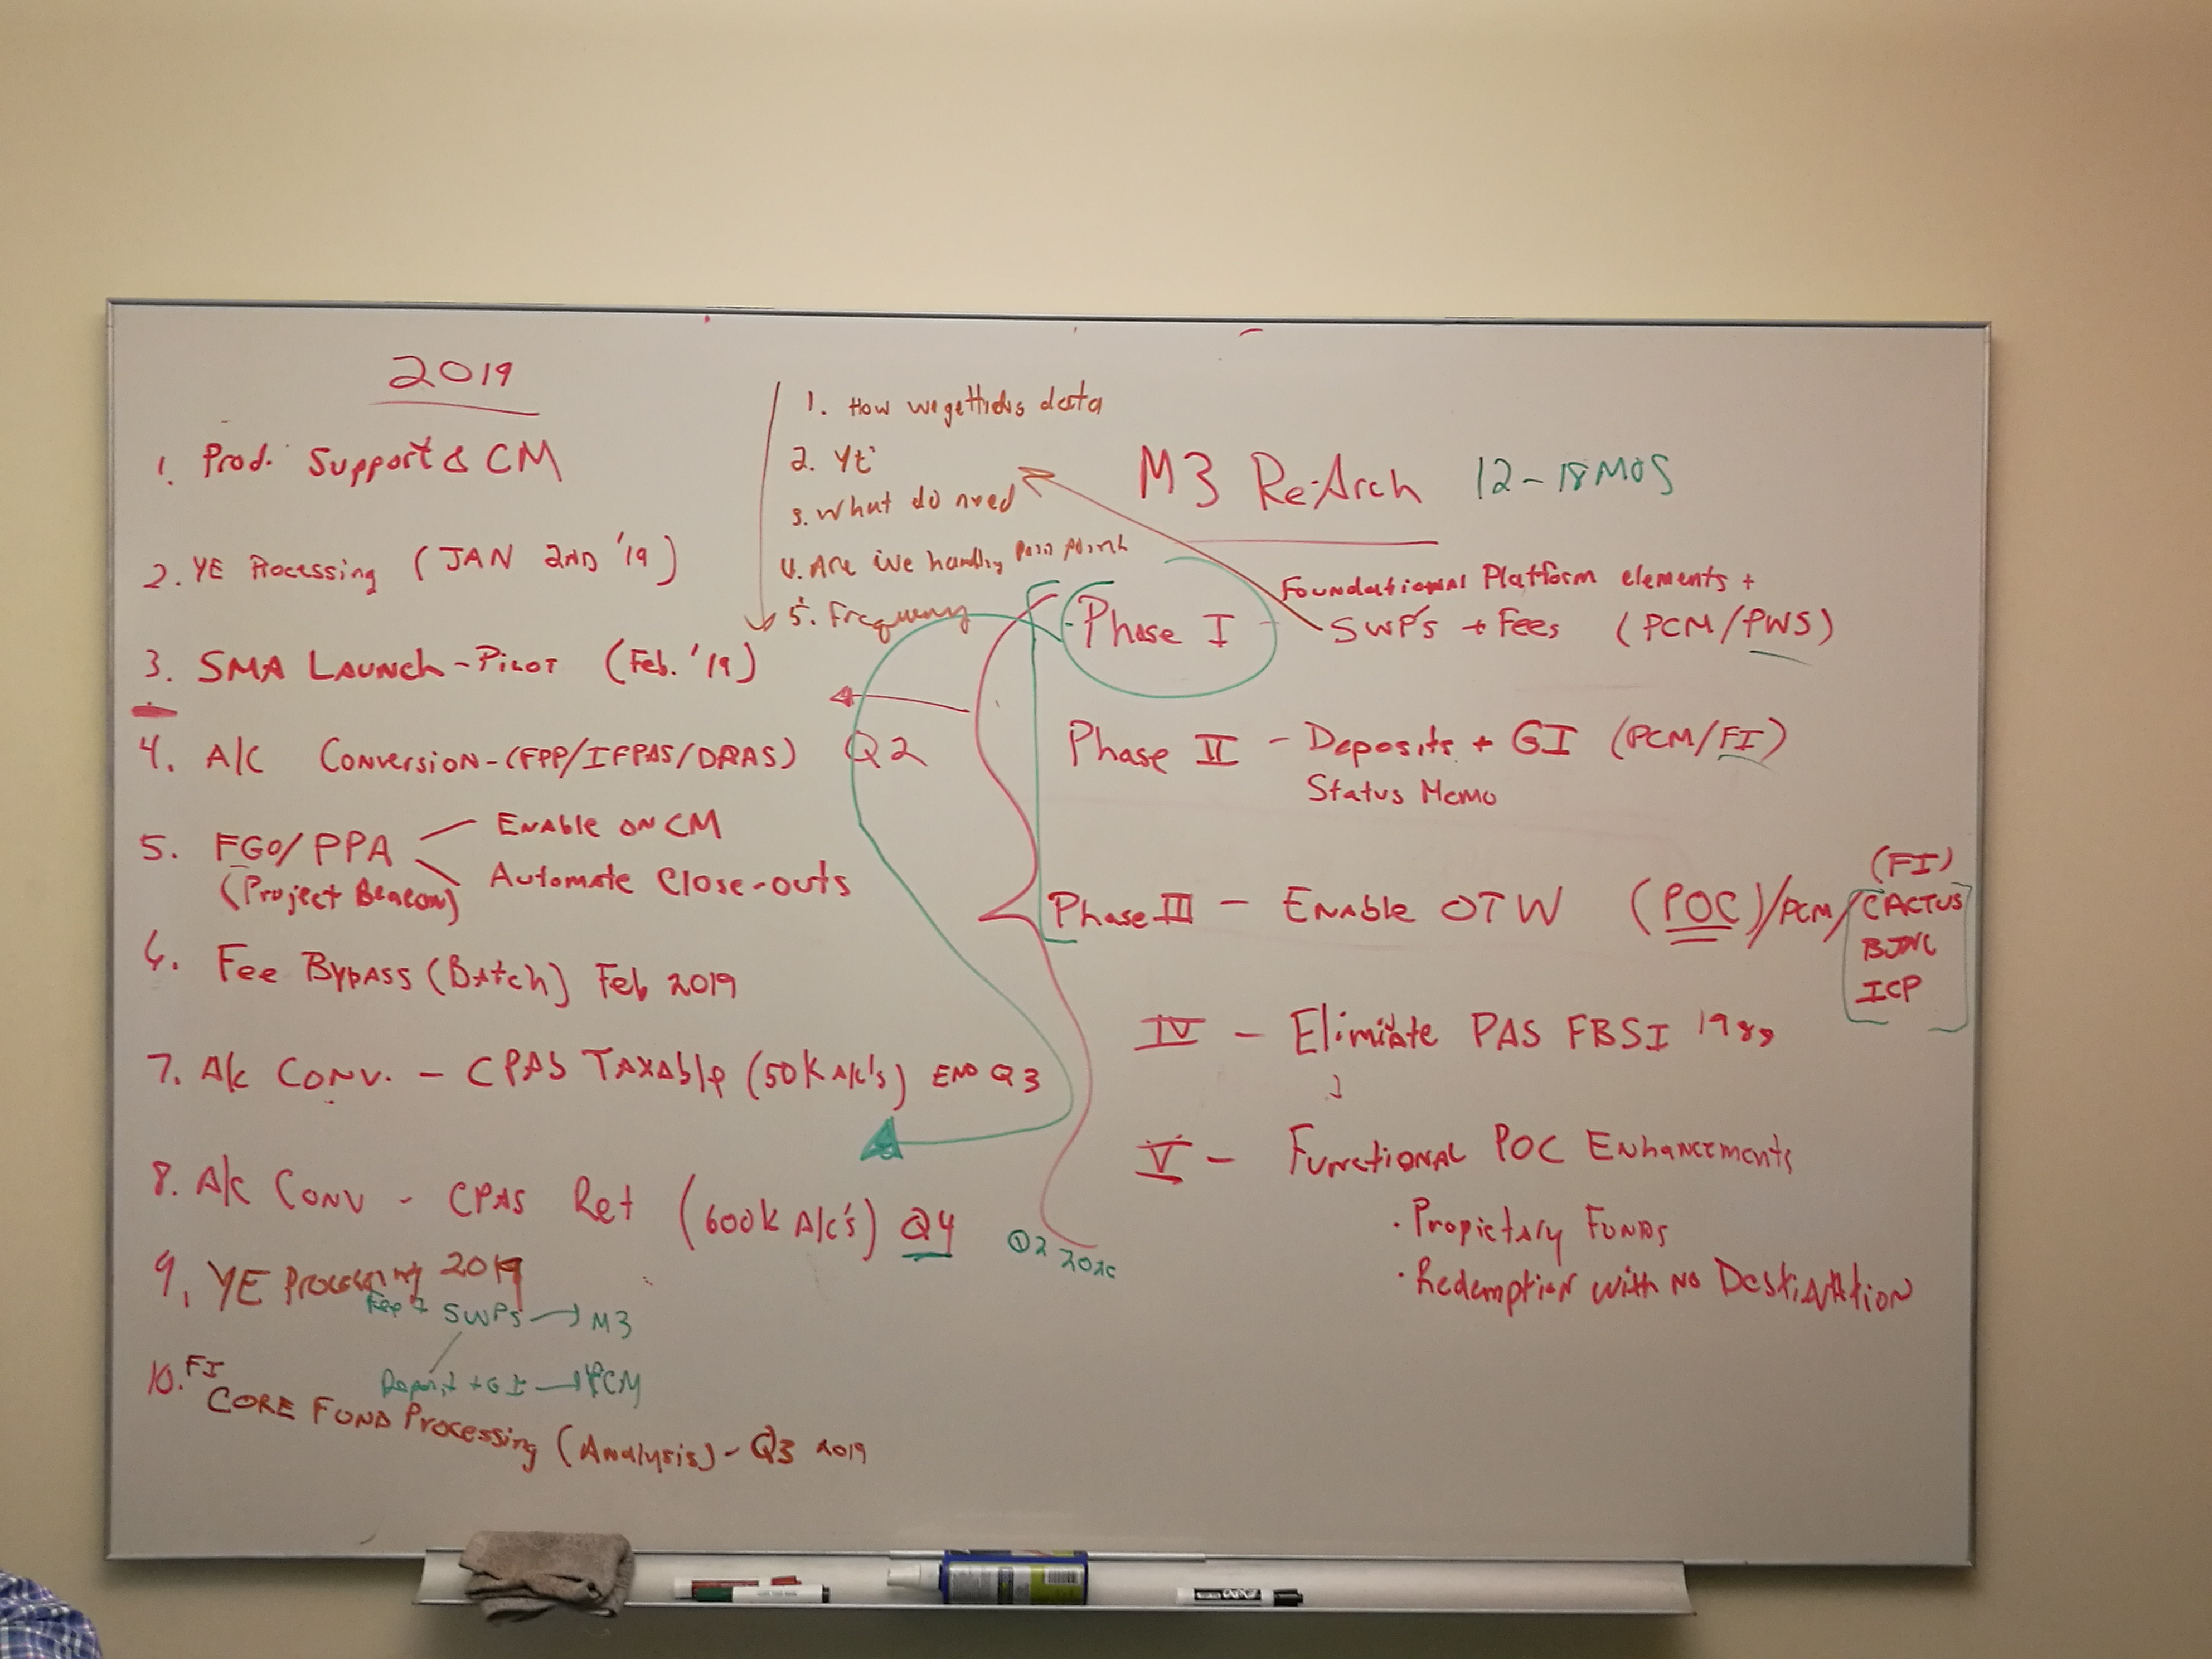 2019
1. Prod. Support & CM
2. YE Processing (JAN 2ND '19)
3. SMA LAUNCH - PILOT (Feb. '19)
4. A/C CONVERSION - (FPP/IFPAS/DRAS) Q2
5. FGO/PPA
ENABLE ON CM
Automate Close-outs
(Project Beacon)
6. Fee BYPASS (BATCH) Feb 2019
7. A/C CONV. - CPAS TAXABLE (50K A/C's) END Q3
8. A/C CONV - CPAS Ret (600K A/C's) Q4
9. YE Processing 2019
Fee + SWPS → M3
Deposit + GI → PCM
10. FI
CORE FUND Processing (Analysis) - Q3 2019
1. How we get this data
2.
3. What do need
4. Are we handling pain points
5. Frequency
M3 Re-Arch 12-18 MOS
Phase I
Foundational Platform elements +
SWP'S + Fees (PCM/PWS)
Phase II - Deposits + GI (PCM/FI)
Status Memo
Phase III - ENABLE OTW (POC)/PCM/
(FI)
CACTUS
ICP
IV - Elimiate PAS FBSI 1989
V - Functional POC Enhancements
· Propietary Funds
· Redemption with no Destination
Q2